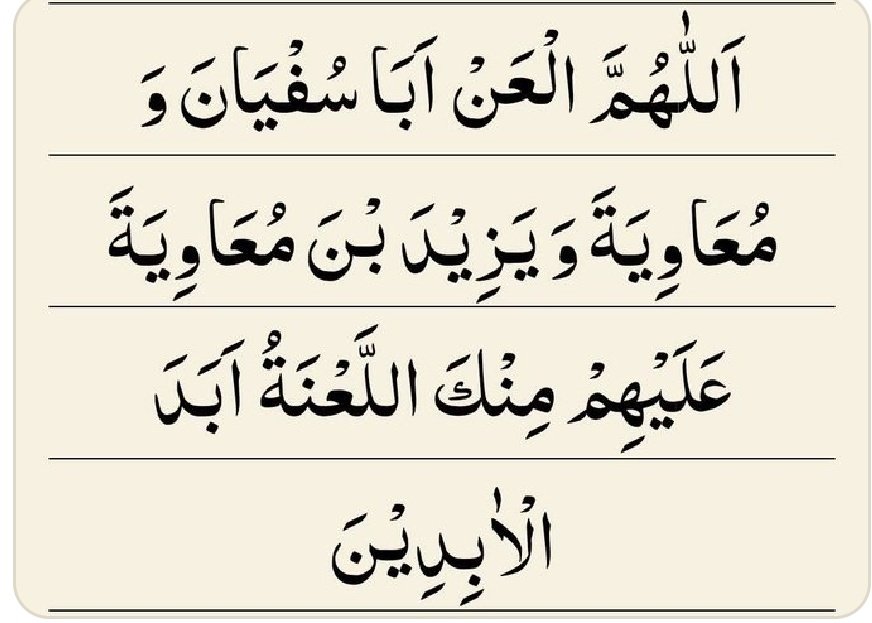 اَللّٰهُمَّ الْعَنْ اَبَا سُفْيَانَ وَ
مُعَاوِيَةَ وَ يَزِيْدَ بْنَ مُعَاوِيَةَ
عَلَيْهِمْ مِنْكَ اللَّعْنَةُ اَبَدَ
الْاٰبِدِيْنَ